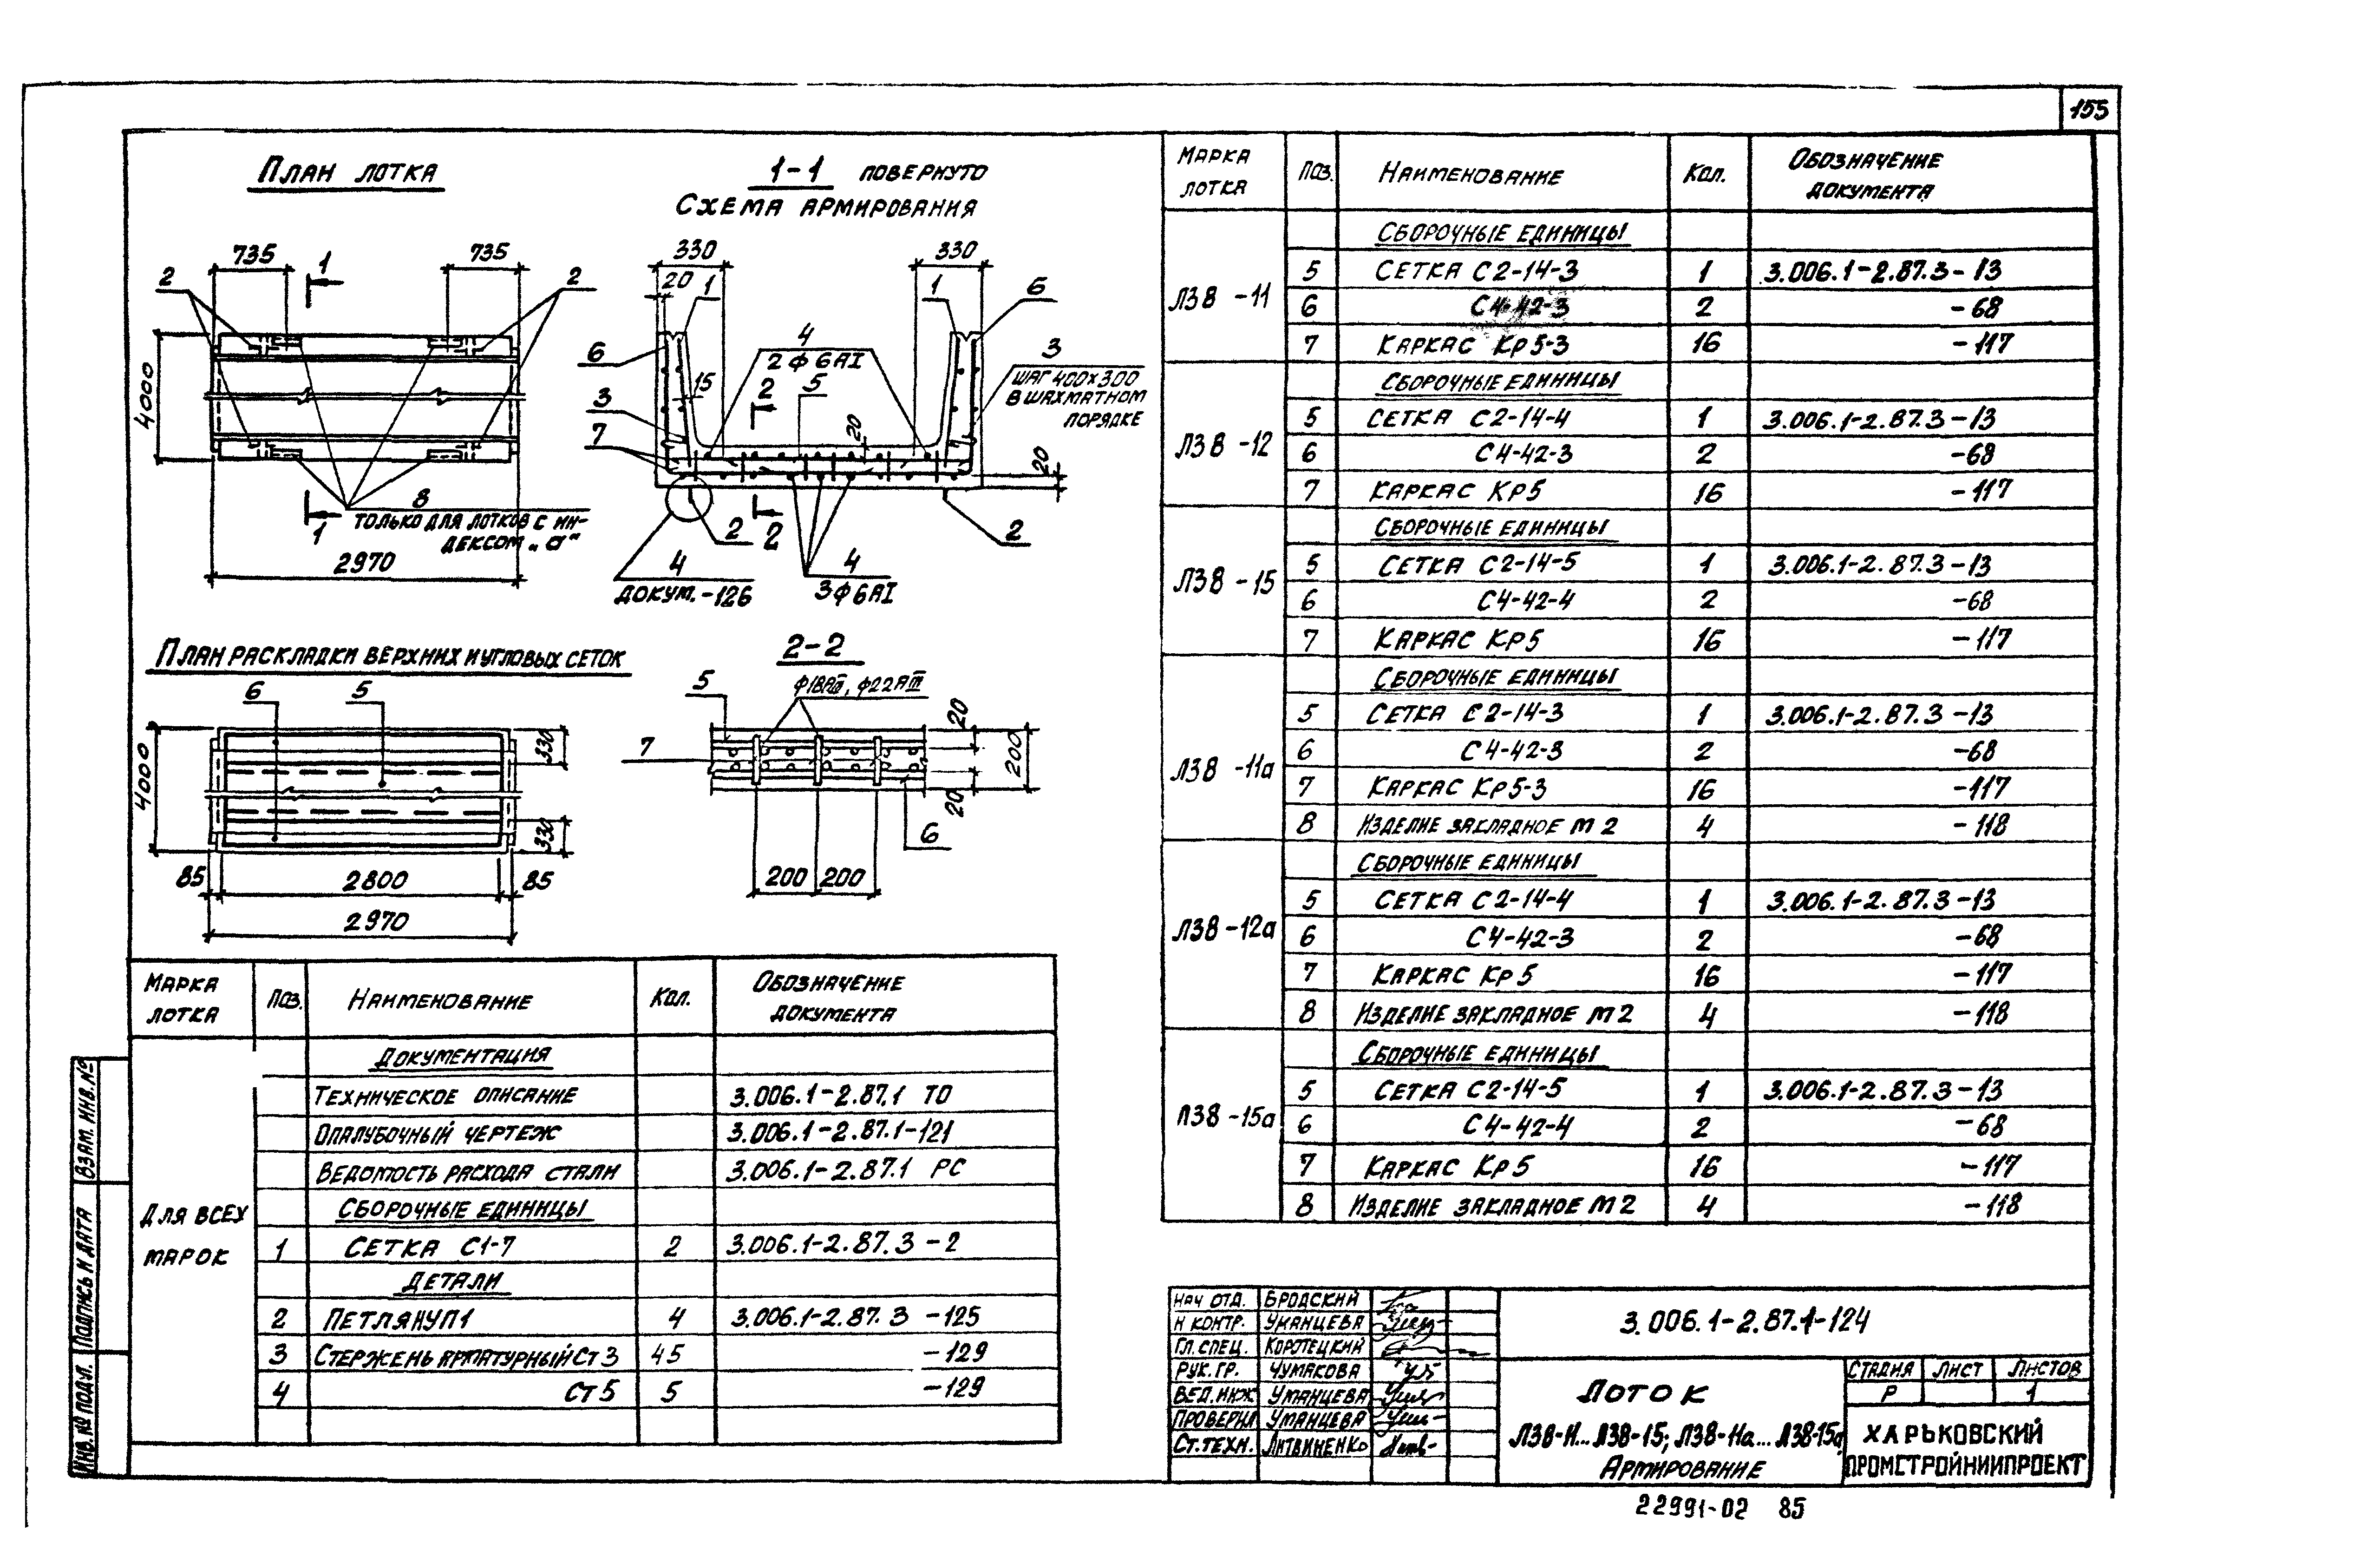 155
План лотка
1-1 повернуто
Схема армирования
735
735
1
2
2
4000
8
только для лотков с ин-
дексом „а“
1
2970
330
330
20
1
1
6
4
2ф6АI
6
15
2
5
3
шаг 400×300
в шахматном
порядке
3
7
20
20
2
2
2
4
докум.-126
4
3ф6АI
План раскладки верхних и угловых сеток
6
5
4000
330
330
85
2800
85
2970
2-2
5
ф18АIII, ф22АIII
7
20
200
20
6
200
200
Марка лотка | Поз. | Наименование | Кол. | Обозначение документа
Для всех марок
Документация
Техническое описание 3.006.1-2.87.1 ТО
Опалубочный чертеж 3.006.1-2.87.1-121
Ведомость расхода стали 3.006.1-2.87.1 РС
Сборочные единицы
1 Сетка С1-7 2 3.006.1-2.87.3-2
Детали
2 Петля НУП1 4 3.006.1-2.87.3 -125
3 Стержень арматурный Ст3 45 -129
4 Ст5 5 -129
Марка лотка | Поз. | Наименование | Кол. | Обозначение документа
Л38-11
Сборочные единицы
5 Сетка С2-14-3 1 3.006.1-2.87.3-13
6 С4-42-3 2 -68
7 Каркас Кр5-3 16 -117
Л38-12
Сборочные единицы
5 Сетка С2-14-4 1 3.006.1-2.87.3-13
6 С4-42-3 2 -68
7 Каркас Кр5 16 -117
Л38-15
Сборочные единицы
5 Сетка С2-14-5 1 3.006.1-2.87.3-13
6 С4-42-4 2 -68
7 Каркас Кр5 16 -117
Л38-11а
Сборочные единицы
5 Сетка С2-14-3 1 3.006.1-2.87.3-13
6 С4-42-3 2 -68
7 Каркас Кр5-3 16 -117
8 Изделие закладное М2 4 -118
Л38-12а
Сборочные единицы
5 Сетка С2-14-4 1 3.006.1-2.87.3-13
6 С4-42-3 2 -68
7 Каркас Кр5 16 -117
8 Изделие закладное М2 4 -118
Л38-15а
Сборочные единицы
5 Сетка С2-14-5 1 3.006.1-2.87.3-13
6 С4-42-4 2 -68
7 Каркас Кр5 16 -117
8 Изделие закладное М2 4 -118
Взам. инв. №
Подпись и дата
Инв. № подл.
Нач отд. Бродский
Н контр. Уманцева
Гл. спец. Коротецкий
Рук. гр. Чумакова
Вед. инж Уманцева
Проверил Уманцева
Ст. техн. Литвиненко
3.006.1-2.87.1-124
Лоток
Л38-11...Л38-15; Л38-11а...Л38-15а
Армирование
Стадия Лист Листов
Р 1
Харьковский
ПромстройНИИпроект
22991-02 85